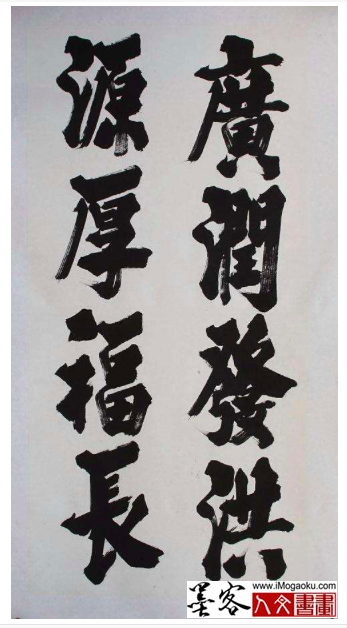 廣潤發洪
源厚福長
www.iMogaoku.com
墨客
人文書畫